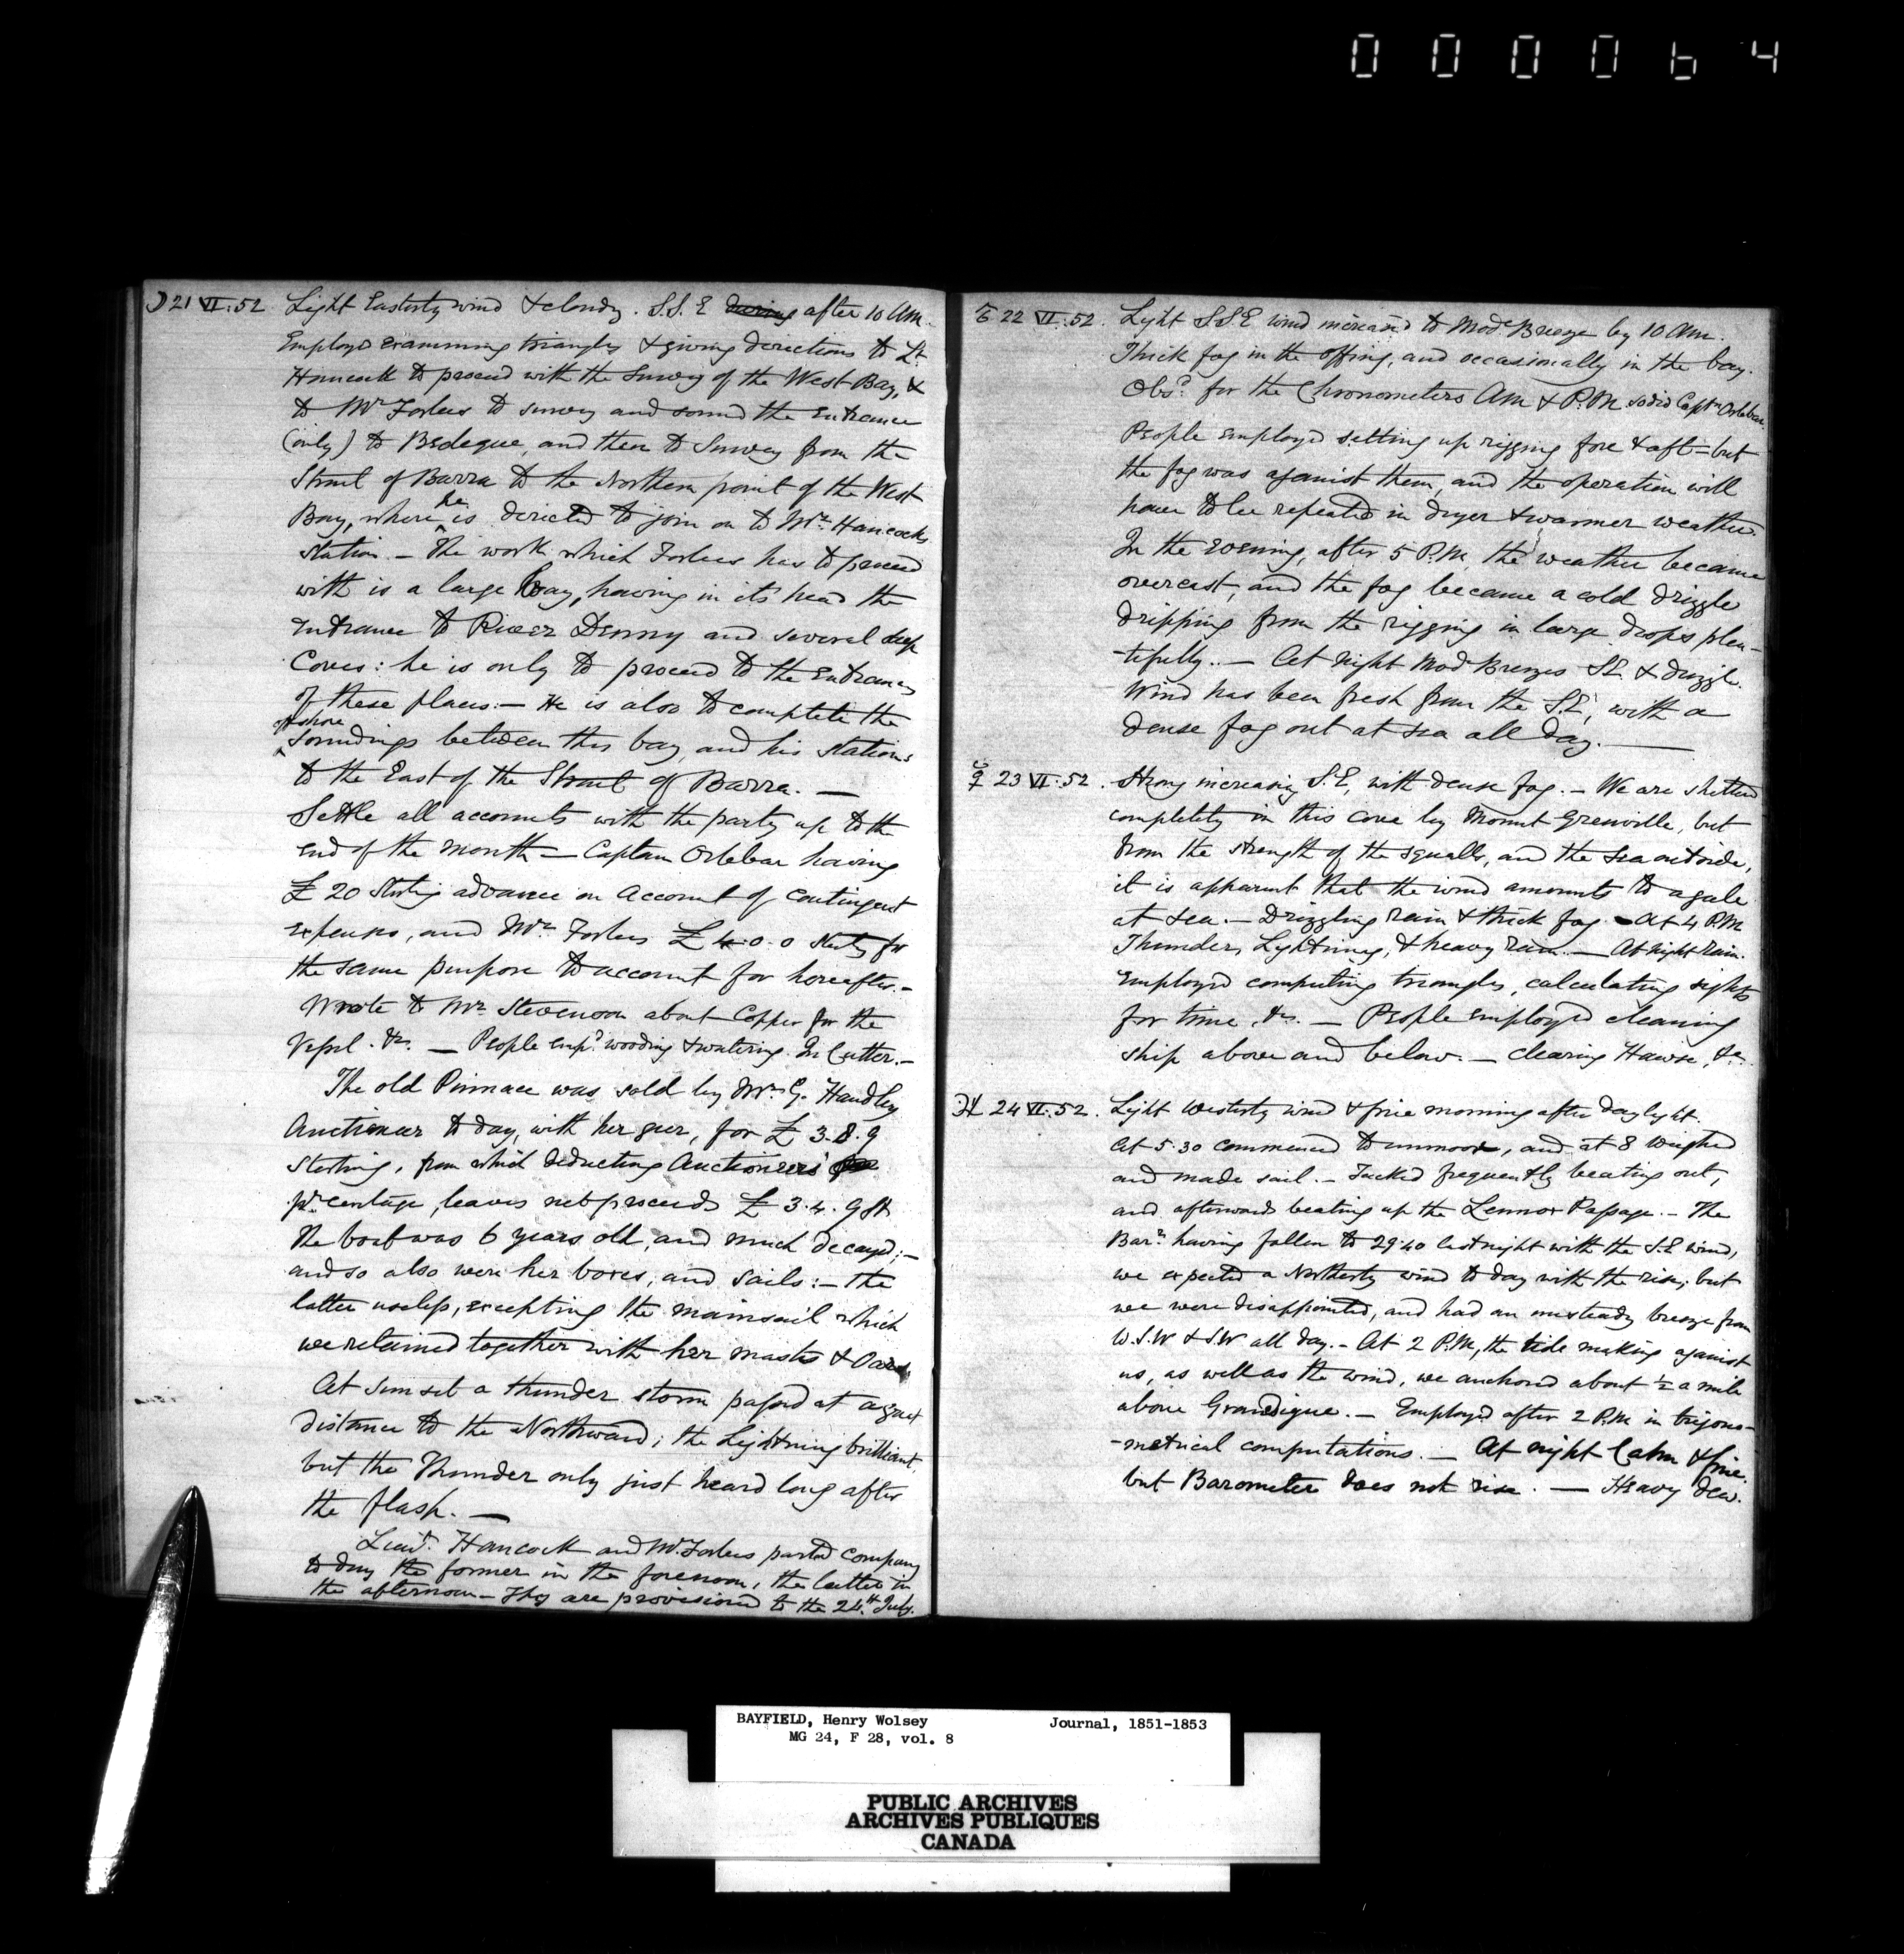 000064
☽ 21 VI. 52. Light Easterly wind & cloudy. S.S.E during after 10 AM.
Employd examining triangles & giving directions to Lt.
Hancock to proceed with the Survey of the West Bay, &
to Mr Forbes to survey and sound the Entrance
(only) to Bedeque, and then to Survey from the
Strait of Barra to the Northern point of the West
Bay, where he is directed to join on to Mr. Hancocks
station. – The work which Forbes has to proceed
with is a large Bay, having in its head the
Entrance to River Denny and several deep
Coves: he is only to proceed to the Entrances
of these places. – He is also to complete the
off shore soundings between this bay and his Stations
to the East of the Strait of Barra. —
Settle all accounts with the party up to the
end of the month – Captain Orlebar having
£ 20 Sterling advance on account of Contingent
expenses, and Mr. Forbes £ 4.0.0 Sterlg for
the same purpose to account for hereafter. –
Wrote to Mr. Stevenson about Copper for the
Vessel. &c. — People empd. wooding & watering. In Cutter. –
The old Pinnace was sold by Mr. G. Handley
Auctioneer to day, with her gear, for £ 3.8.9
Sterling, from which deducting Auctioneers'
pr. centage, leaves net proceeds £ 3.4.9 St.
The boat was 6 years old, and much decayed; –
and so also were her boxes, and Sails: – the
latter useless, excepting the mainsail which
we retained together with her masts & Oars.
At Sunset a thunder storm passed at a great
distance to the Northward; the Lightning brilliant,
but the Thunder only just heard long after
the flash. —
Lieut. Hancock and Mr. Forbes parted Company
to day the former in the forenoon, the latter in
the afternoon – They are provisioned to the 24th. July.
♂ 22 VI. 52. Light S.S.E wind increased to Mod. Breeze by 10 AM.
Thick fog in the offing, and occasionally in the bay.
Obsd. for the Chronometers AM & P.M. so did Captn Orlebar.
People employd setting up rigging fore & aft – but
the fog was against them, and the operation will
have to be repeated in dryer & warmer weather.
In the evening, after 5 P.M, the weather became
overcast, and the fog became a cold drizzle
dripping from the rigging in large drops plen-
-tifully.. — At night Mod Breezes S.E. & drizzle.
Wind has been fresh from the S.E, with a
dense fog out at sea all day. —
☿ 23 VI. 52. Strong increasing S.E, with dense fog. – We are sheltered
completely in this cove by Mount Grenville, but
from the strength of the squalls, and the sea outside,
it is apparent that the wind amounts to a gale
at sea. – Drizzling rain & thick fog – At 4 P.M
Thunder, Lightning, & heavy rain. — At night rain.
Employed computing triangles, calculating sights
for time, &c. — People employed cleaning
ship above and below. — clearing Hawse, &c.
♃ 24 VI. 52. Light Westerly wind & fine morning after daylight.
At 5.30 commenced to unmoor, and at 8 weighed
and made sail. – Tacked frequently beating out,
and afterwards beating up the Lennox Passage. – The
Barr. having fallen to 29.40 last night with the S.E wind,
we expected a Northerly wind to day with the rise; but
we were disappointed, and had an unsteady breeze from
W.S.W & S.W all day. – At 2 P.M, the tide making against
us, as well as the wind, we anchored about ½ a mile
above Grandigue. – Employed after 2 P.M in trigono-
-metrical computations. — At night Calm & fine.
but Barometer does not rise. — Heavy Dew.
BAYFIELD, Henry Wolsey Journal, 1851-1853
MG 24, F 28, vol. 8
PUBLIC ARCHIVES
ARCHIVES PUBLIQUES
CANADA